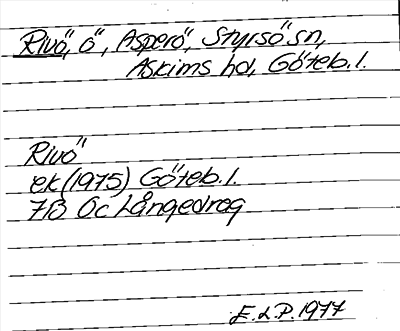 Rivö, ö, Asperö, Styrsö sn,
Askims hd, Göteb. l.
Rivö
ek (1975) Göteb. l.
7B 0c Långedrag
E.L.P. 1977